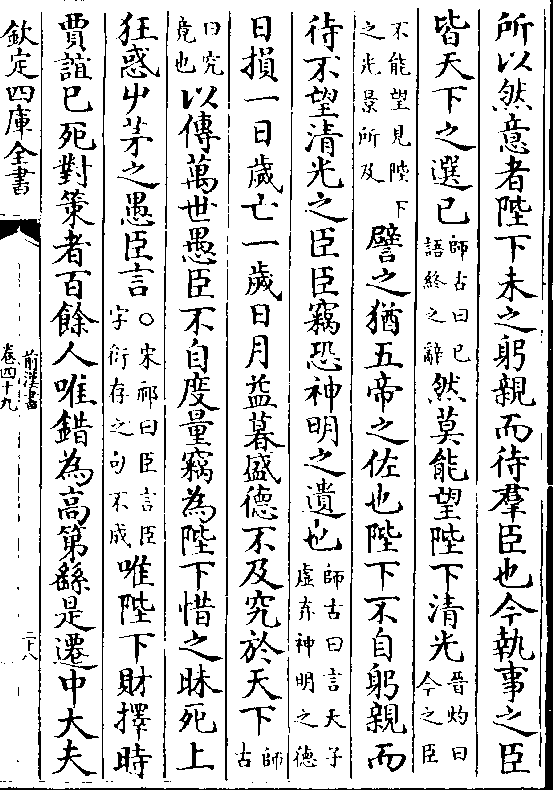 所以然意者陛下未之躬親而待羣臣也今執事之臣
皆天下之選已師古曰已語終之辭然莫能望陛下清光晉灼曰今之臣
不能望見陛下之光景所及譬之猶五帝之佐也陛下不自躬親而
待不望清光之臣臣竊恐神明之遺也師古曰言天子虛弃神明之德
日損一日歲亡一歲日月益暮盛德不及究於天下師古
曰究竟也以傳萬世愚臣不自度量竊為陛下惜之昧死上
狂惑屮茅之愚臣言○宋祁曰臣言臣字衍存之句不成唯陛下財擇時
賈誼已死對策者百餘人唯錯為高第繇是遷中大夫
欽定四庫全書
前漢書
卷四十九
二十八